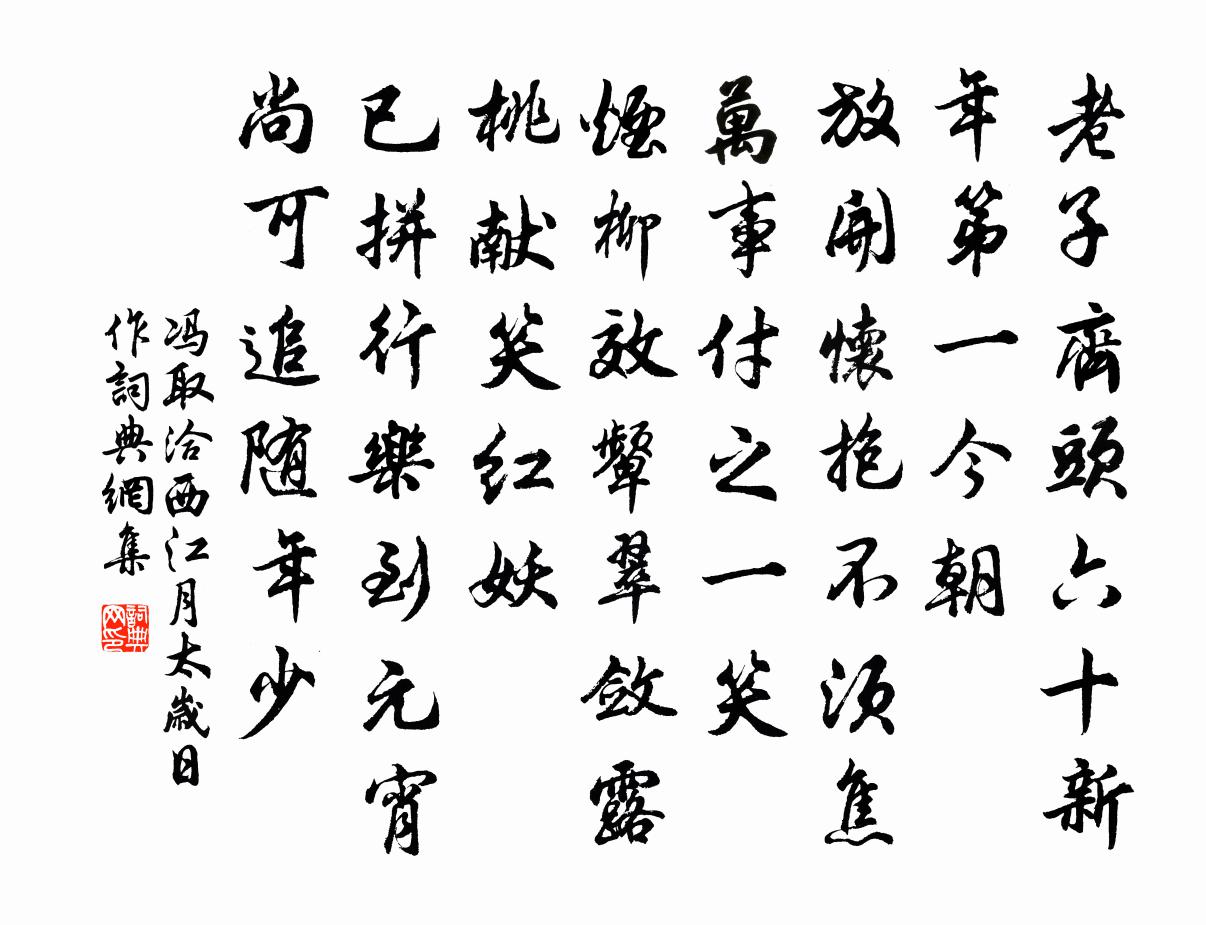 老子齊頭六十新
年第一今朝
放開懷抱不須焦
萬事付之一笑
煙柳效顰翠斂露
桃献笑红妖
已拼行樂到元宵
尚可追随年少
冯取洽西江月太歲日
作詞典網集
詞典网印